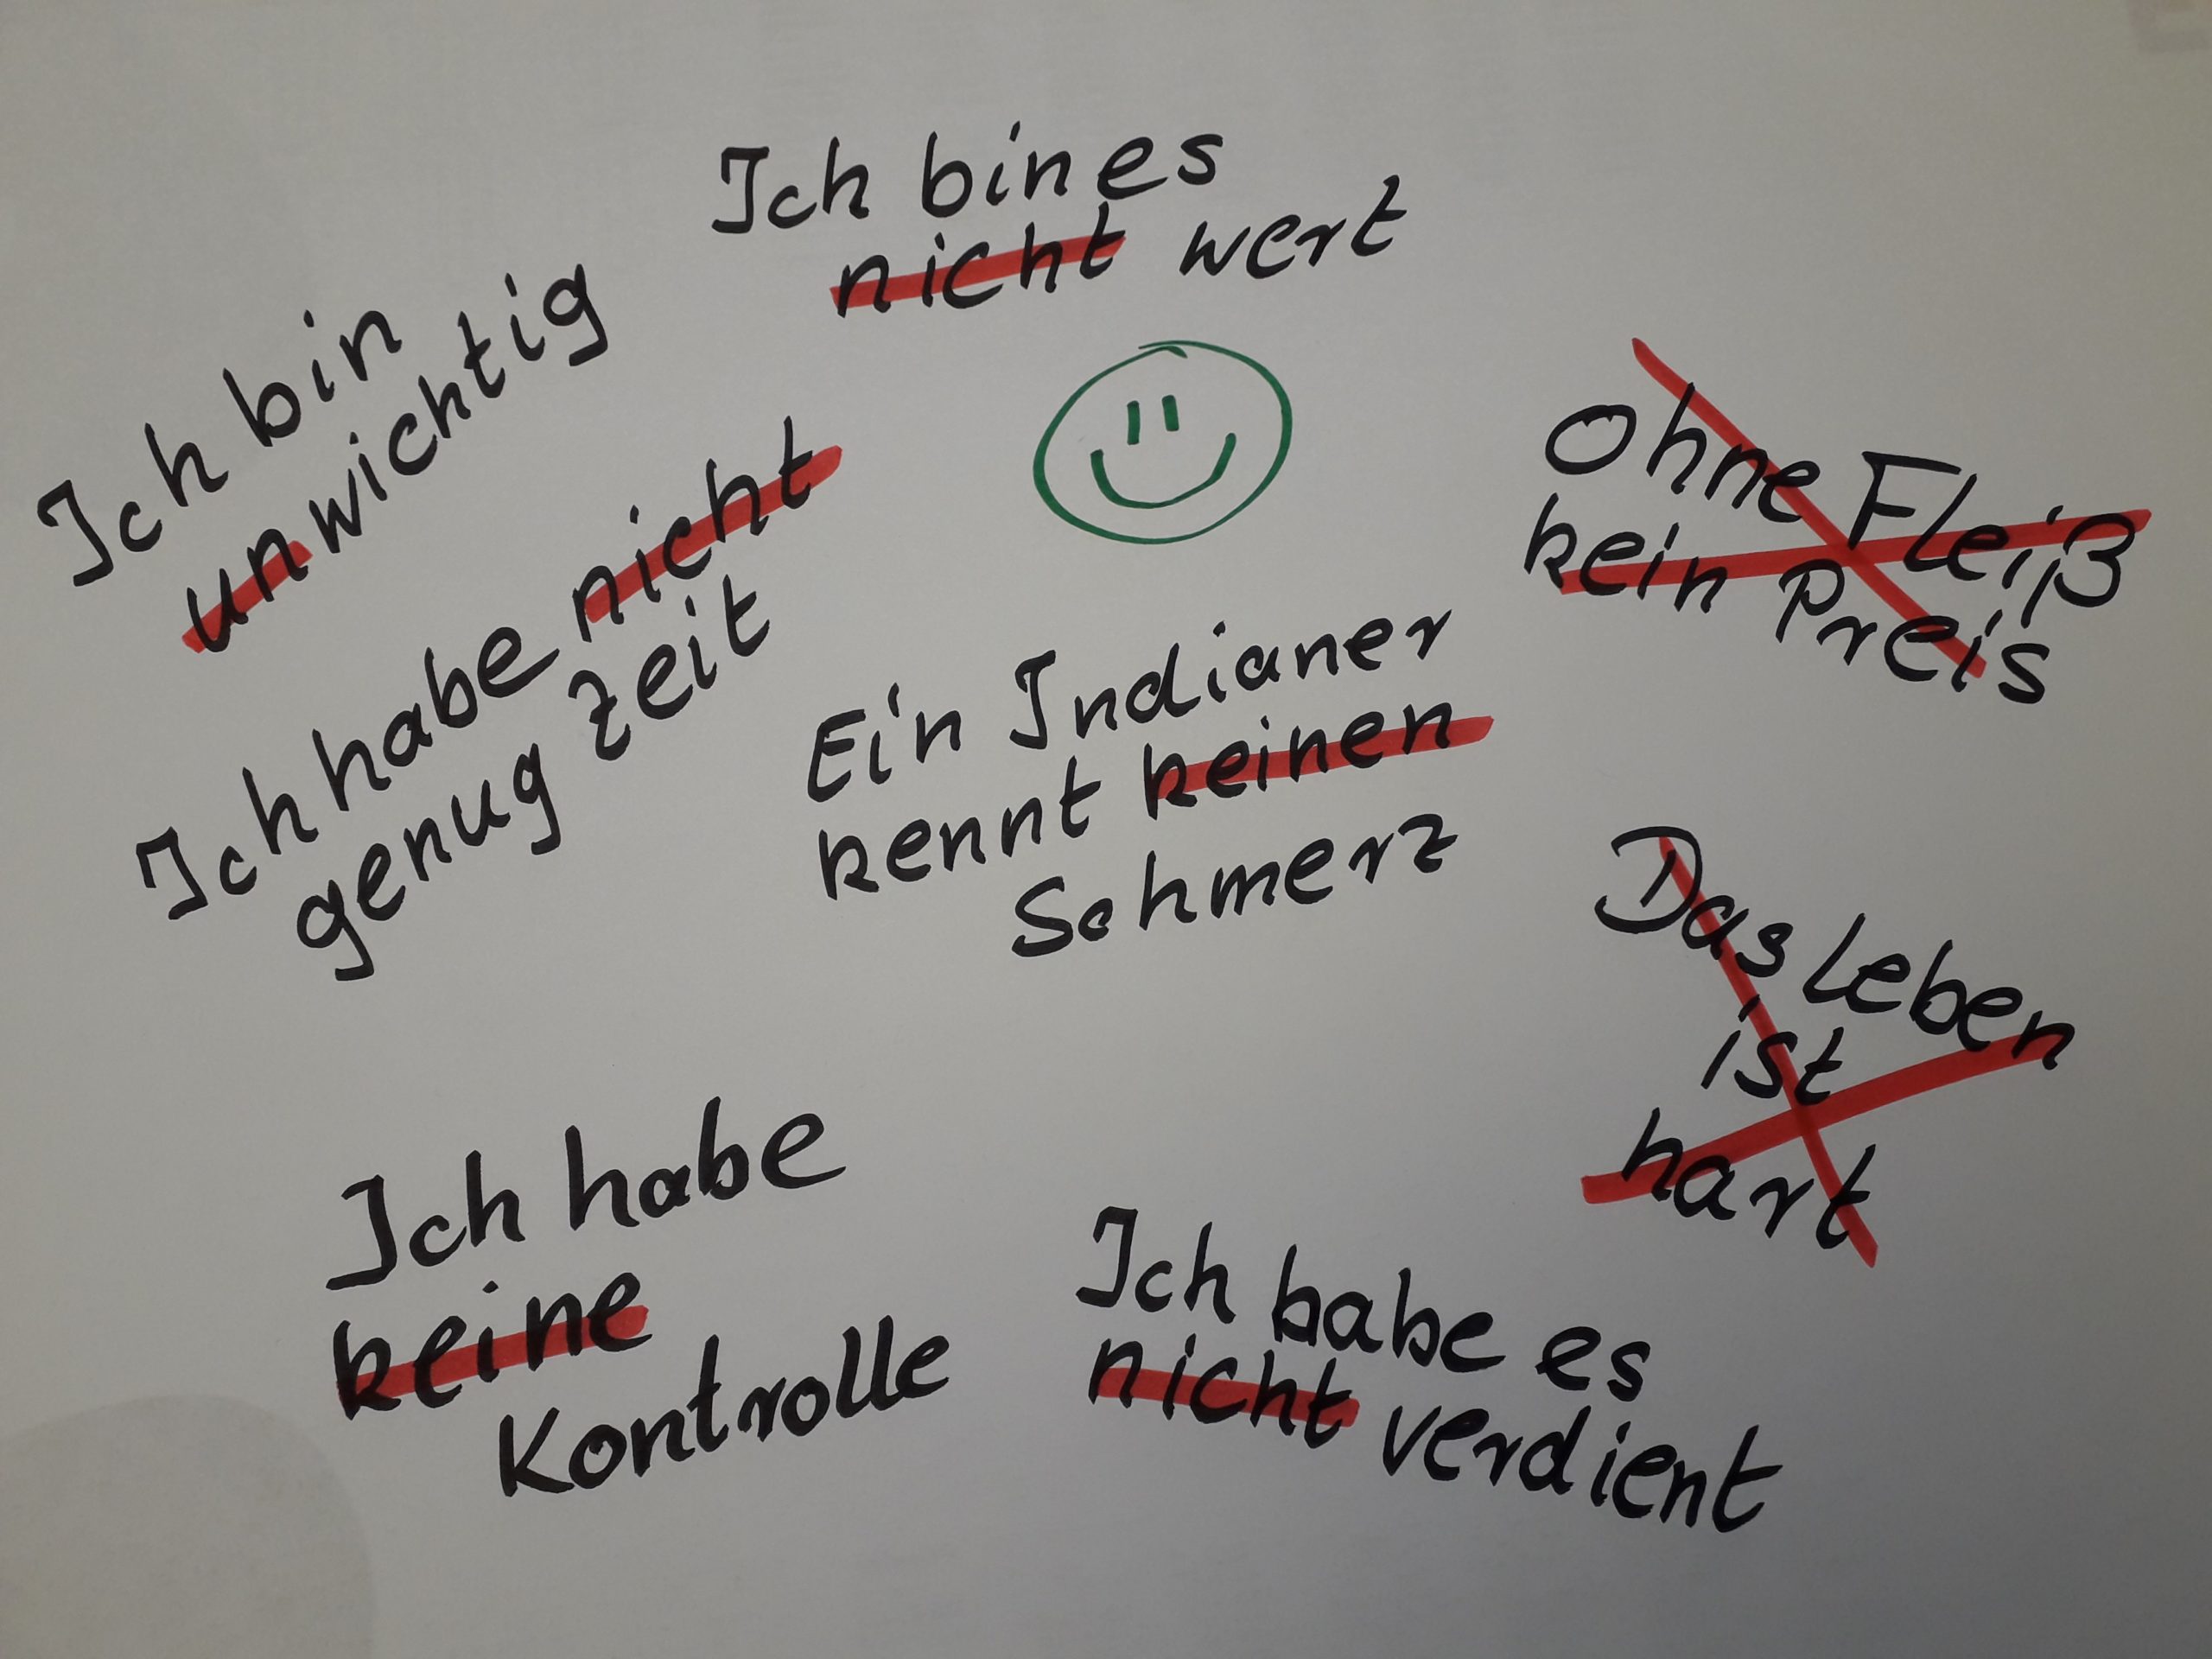 Ich bin es
nicht wert
Ich bin
unwichtig
Ich habe nicht
genug zeit
Ohne Fleiß
kein Preis
Ein Indianer
kennt keinen
Schmerz
Das Leben
ist
hart
Ich habe
keine
Kontrolle
Ich habe es
nicht verdient